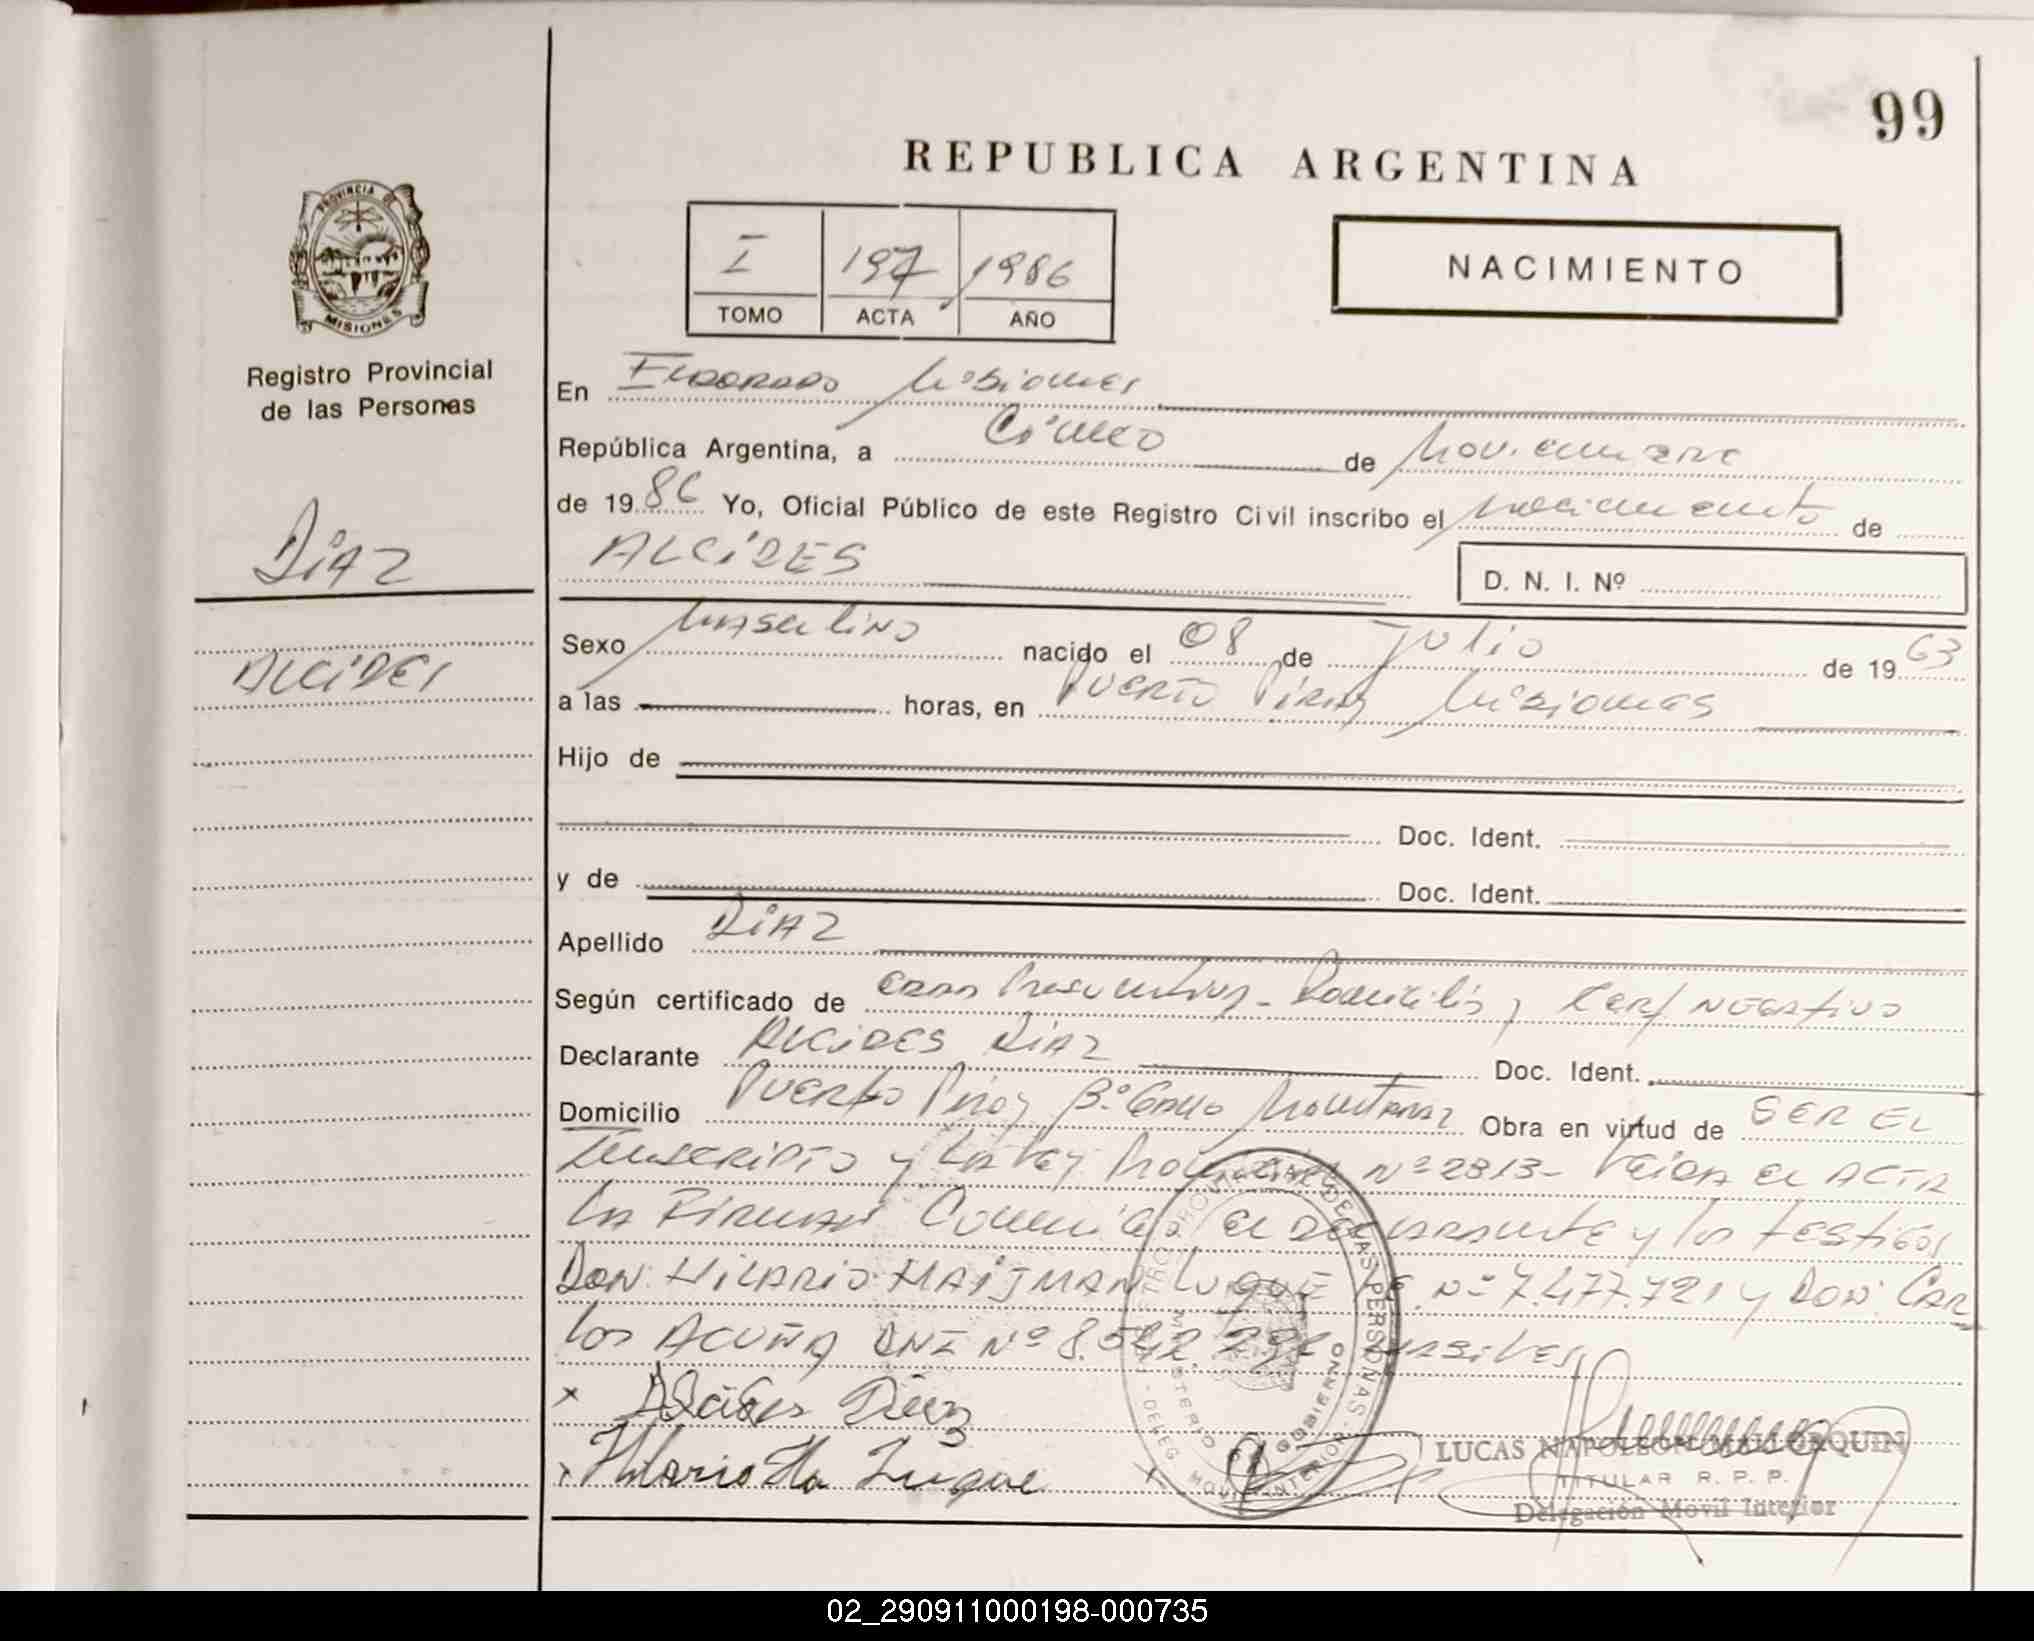 99
REPUBLICA ARGENTINA
PROVINCIA DE
MISIONES
Registro Provincial
de las Personas
I 197 1986
TOMO ACTA AÑO
NACIMIENTO
En Eldorado Misiones
República Argentina, a Cinco de Noviembre
de 1986 Yo, Oficial Público de este Registro Civil inscribo el nacimiento de
DiAZ
ALCiDES
D. N. I. Nº
ALCiDES
Sexo Masculino nacido el 08 de Julio de 1963
a las horas, en Puerto Piray Misiones
Hijo de
Doc. Ident.
y de Doc. Ident.
Apellido DiAZ
Según certificado de Edad Presuntiva - Domicilio y Cert/ Negativo
Declarante ALCiDES DiAZ Doc. Ident.
Domicilio Puerto Piray Bº Obra en virtud de SER EL
Inscripto y la Ley Provincial Nº 2813 - Leida el ACTA
la Firman Conmigo el declarante y los testigos
DON HiLARiO HAiJMAN LUQUE Nº 7.477.721 y DON CAR
los ACUÑA DNI Nº 8.542. Hábiles
x Alcides Diaz
x Hilario Ha Luque x
REGISTRO PROVINCIAL DE LAS PERSONAS
MINISTERIO GOBIERNO
DELEG. MOVIL INTERIOR
LUCAS NAPOLEON MALLORQUIN
TITULAR R. P. P.
Delegación Movil Interior
02_290911000198-000735